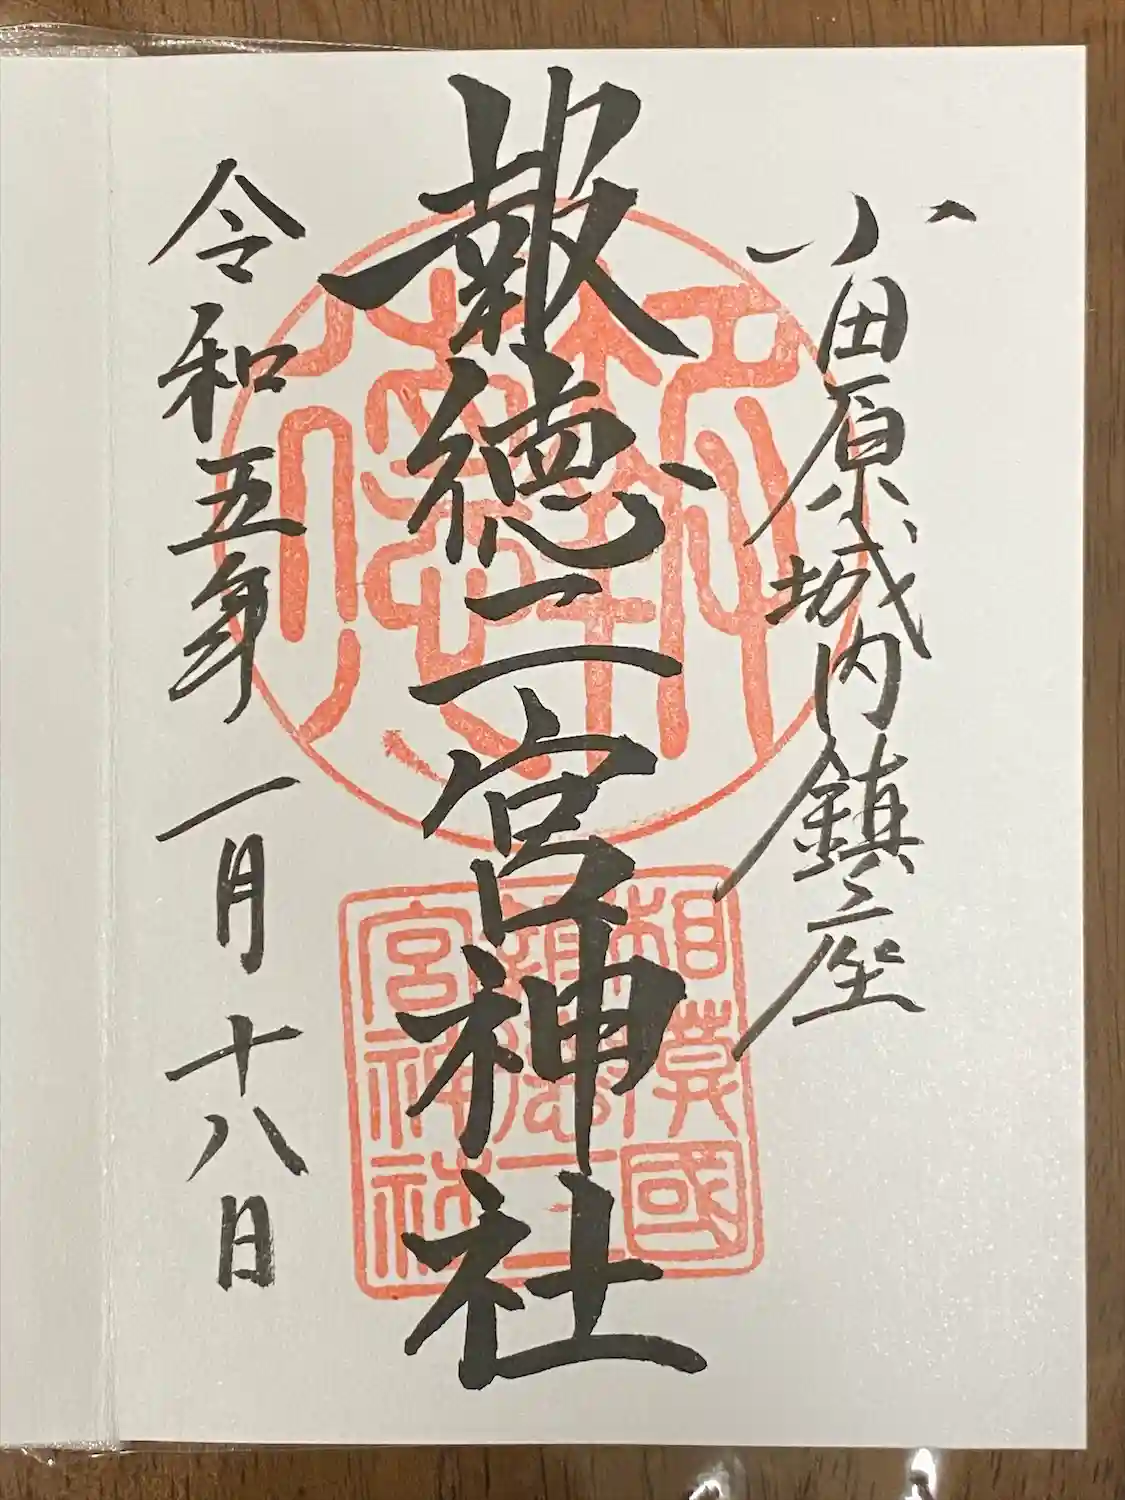 小田原城内鎮座
報徳二宮神社
相莫國
報徳二
宮神社
令和五年 一月十八日